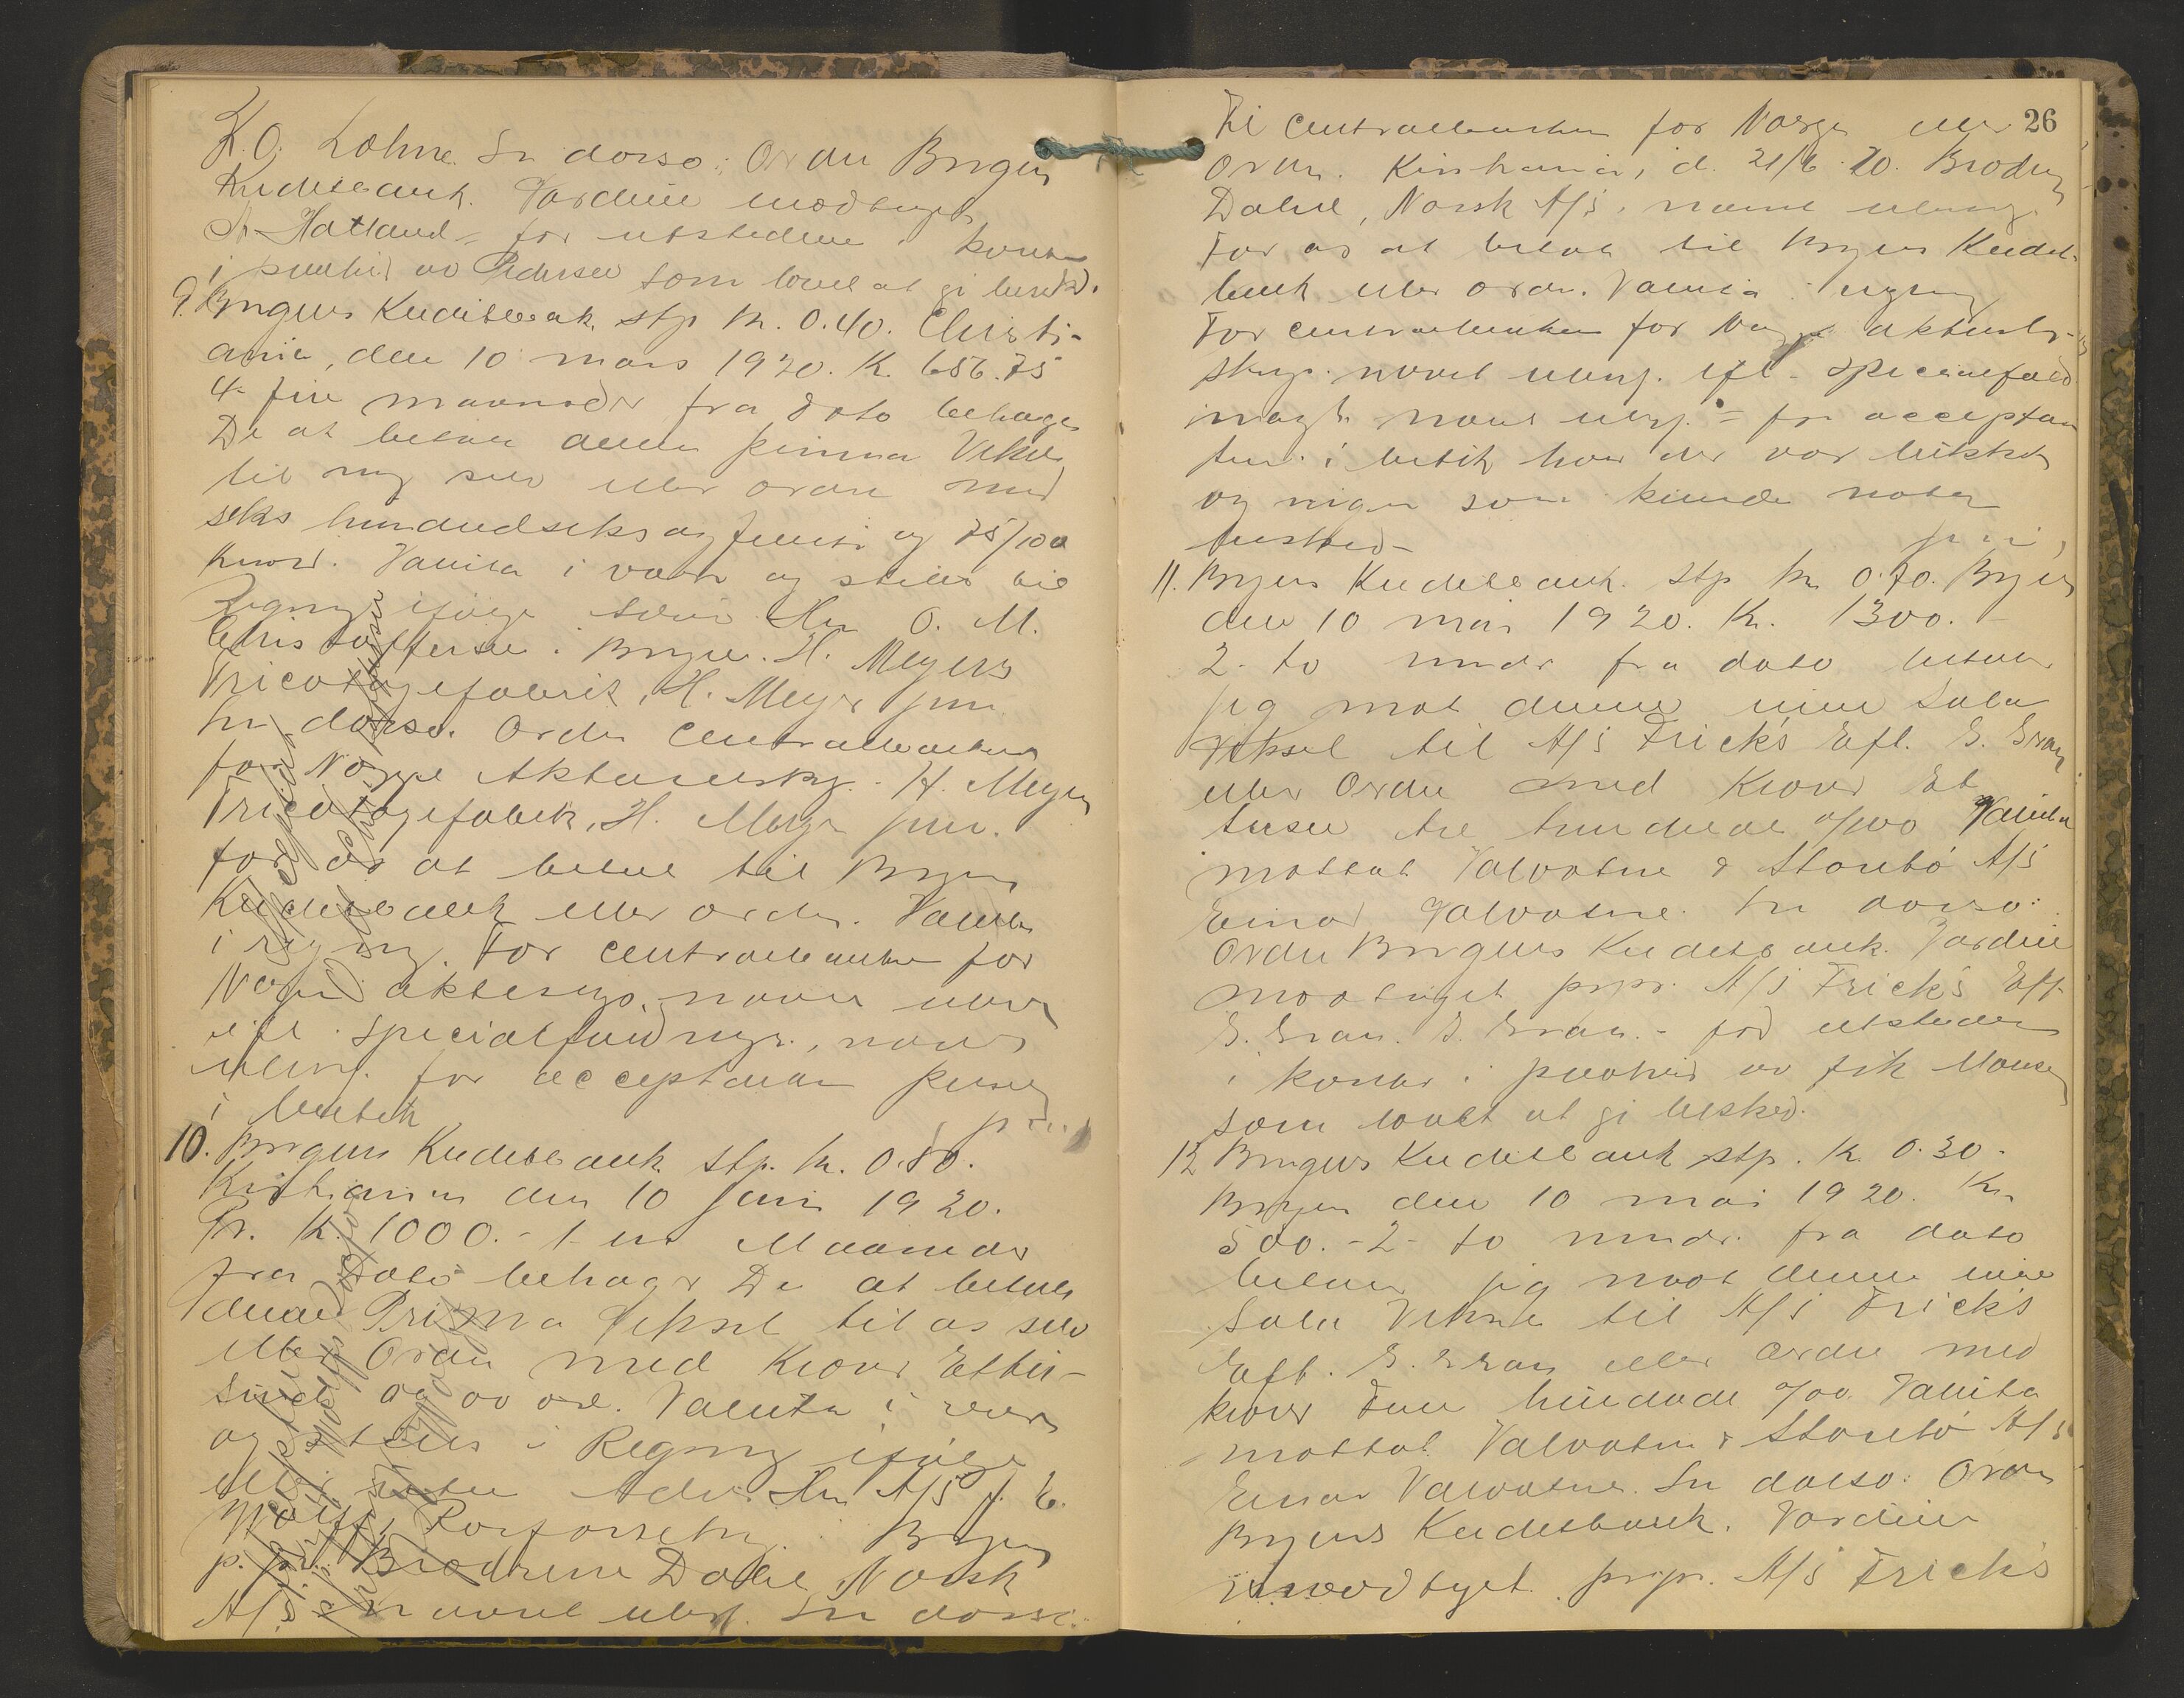 K. O. Lohne. In dorso: Ordre Bergens
Kreditbank. Værdien modtaget
A. Hatland - for utstederen i kontor
i paahør av Pedersen som lovet at gi besked.
9. Bergens Kreditbank, stp kr. 0.40. Christi-
ania, den 10 mars 1920. K. 656.75
4 fire maaneder fra dato behager
De at betale denne prima Veksel
til mig selv eller ordre med
seks hundredseksogfemti og 75/100
Kroner. Valuta i varer og stilles til
Regning ifølge Herr O. M.
Christoffersen i Bergen. H. Meyers
Tricotagefabrik, H. Meyer jun.
In dorso. Ordre Centralbanken
for Norge Aktieselsk. - H. Meyers
Tricotagefabrik, H. Meyer jun.
for os at betale til Bergens
Kreditbank eller ordre. Valuta
i regning. For Centralbanken for
Norge aktieselsk. navn
ifl. specialfuldmgt., navn
for acceptanten
i butik
10. Bergens Kreditbank stp. kr. 0.50.
Kristiania den 10 juni 1920.
Pr. K. 1000.- 1 en Maaneder
fra Dato behager De at betale
denne Prima Veksel til os selv
eller Ordre med Kroner Ettu-
sinde og 00 øre. Valuta i varer
og stilles i Regning ifølge
eller uten Advis. Herr A/S J. E.
Bergen
p. pr. Brødrene Dahl Norsk
A/S navnet In dorso:
26
Til Centralbanken for Norge eller
Ordre. Kristiania, d. 21/6 20. Brødrene
Dahl, Norsk A/S, navnet
For os at betale til Bergens Kredit-
bank eller ordre. Valuta i regning
For Centralbanken for Norge aktiesel-
skap. navnet ifl. specialfuld-
magt navnet = for acceptan
ten i butik hvor der var lukket
og ingen som kunde motta
besked -
11. Bergens Kreditbank. stp kr 0.70. Bergen
den 10 mai 1920. Kr. 1300. -
2 - to mndr fra dato betaler
jeg mot denne min Sola
Veksel til A/S Frick's Eft. E. Gran
eller Ordre med Kroner Et
tusen tre hundrede 0/100 Valuta
mottat Valvatne & Storebø A/S
Einar Valvatne. In dorso:
Ordre Bergens Kreditbank. Værdien
modtaget prpr. A/S Frick's Eft
E. Gran. E. Gran. - for utstederen
i kontor i paahør av frk Monsen
som lovet at gi besked.
12 Bergens Kreditbank stp. K. 0.30 -
Bergen den 10 mai 1920. Kr.
500. - 2 - to mndr. fra dato
betaler jeg mot denne min
Sola Veksel til A/S Frick's
Eft. E. Gran eller ordre med
kroner Fem hundrede 0/00. Valuta
mottat Valvatne & Storebø A/S
Einar Valvatne. In dorso: Ordre
Bergens Kreditbank. Værdien
modtaget. prpr. A/S Frick's